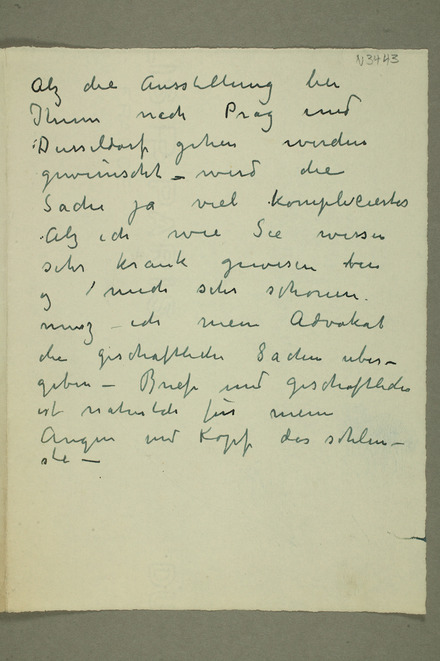 N3443
Alz die Ausstellung bei
Ihnen nach Prag und
Dusseldorf gehen werden
gewünscht – wird die
Sache ja viel kompliciertes
Alz ich wie Sie wissen
sehr krank gewesen bin
og mich sehr schonen
musz ich mein Advokat
die geschaftliche Sachen uber-
geben – Briefe und geschaftliches
ist naturlich für mein
Augen und Kopf das schlim-
ste –